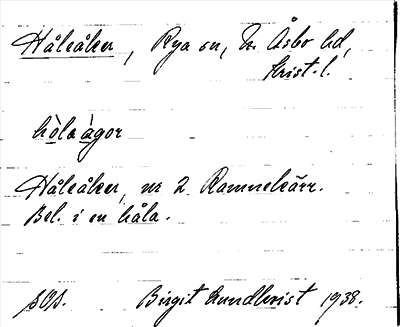 Hålåker, Rya sn, N. Åsbo hd,
Krist. l.
hòlaàgor
Hålåker, nr 2 Ramnekärr.
Bel. i en håla.
SOS. Birgit Lundkvist 1938.